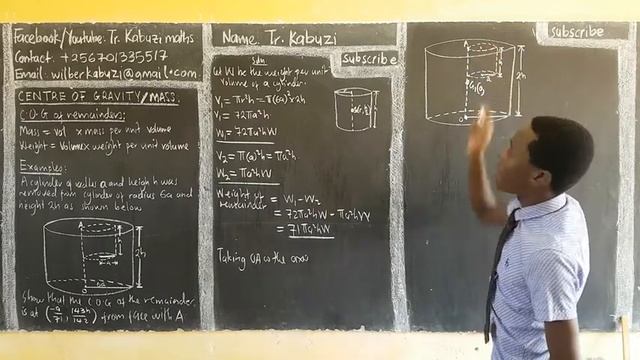 Facebook/Youtube: Tr. Kabuzi maths
Contact: +256701335517
Email: wilberkabuzi@gmail.com
CENTRE OF GRAVITY/MASS.
C.O.G of remainders:
Mass = Vol x mass per unit volume
Weight = Volume x weight per unit volume
Examples:
A cylinder of radius a and heigh h was
removed from cylinder of radius 6a and
height 2h as shown below
A
h
a
2h
O
Show that the C.O.G of the remainder
is at (-a/71, 143h/142) from face with A
Name: Tr. Kabuzi
Subscribe
Soln
Let W be the weight per unit
Volume of a cylinder.
V₁ = πr²h = π(6a)² x 2h
V₁ = 72πa²h
W₁ = 72πa²hW
V₂ = π(a)²h = πa²h
W₂ = πa²hW
Weight of remainder = W₁ - W₂
= 72πa²hW - πa²hW
= 71πa²hW
Taking OA as the axis
Subscribe
A
2h
O